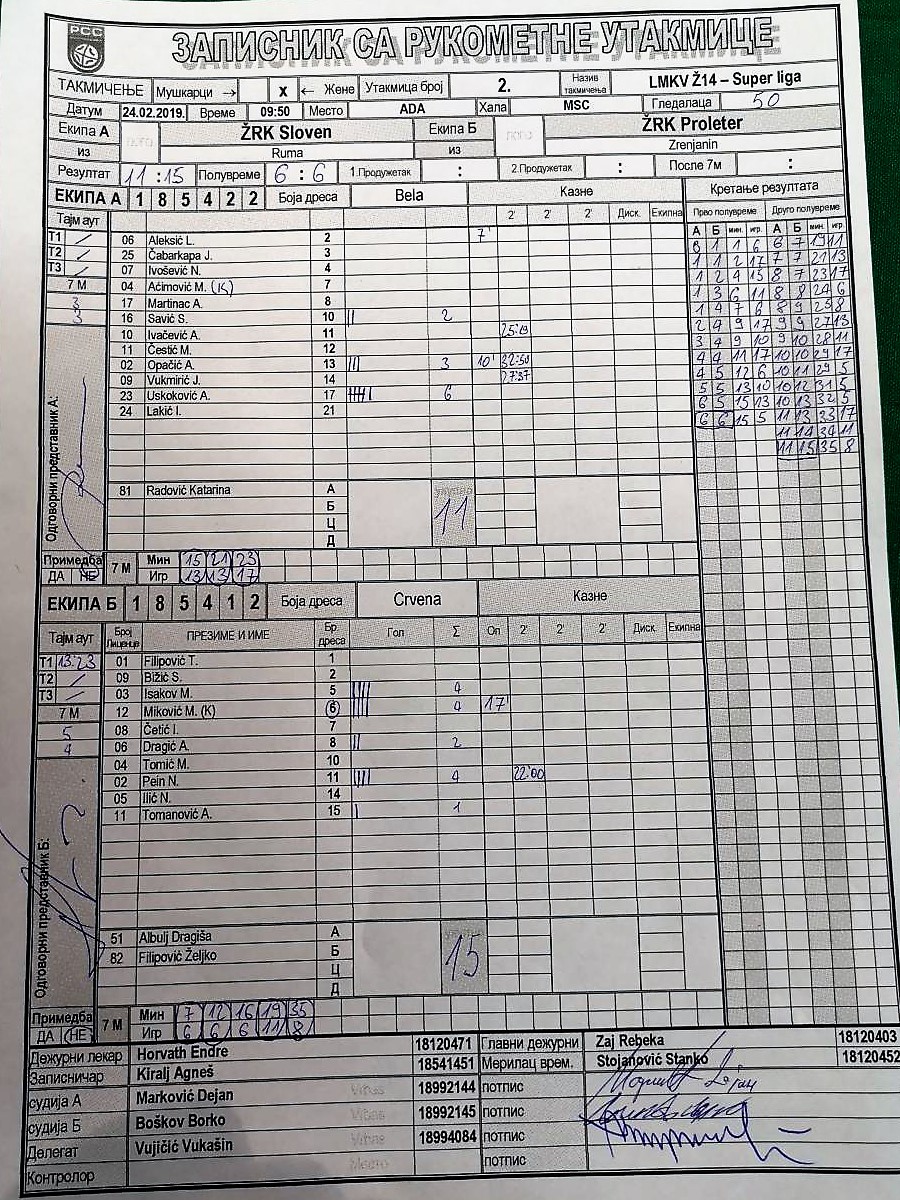 РСС
ЗАПИСНИК СА РУКОМЕТНЕ УТАКМИЦЕ
ТАКМИЧЕЊЕ Мушкарци → x ← Жене Утакмица број 2. Назив такмичења LMKV Ž14 – Super liga
Датум 24.02.2019. Време 09:50 Место ADA Хала MSC Гледалаца 50
Екипа А ŽRK Sloven Екипа Б ŽRK Proleter
из Ruma из Zrenjanin
Резултат 11 : 15 Полувреме 6 : 6 1.Продужетак : 2.Продужетак : После 7м :
ЕКИПА А 1 8 5 4 2 2 Боја дреса Bela Казне Кретање резултата
Тајм аут 2' 2' 2' Диск. Екипна Прво полувреме Друго полувреме
А Б мин. игр. А Б мин. игр.
T1 / 06 Aleksić L. 2 7' 0 1 1 6 6 7 19 11
T2 / 25 Čabarkapa J. 3 1 1 2 17 7 7 21 13
T3 / 07 Ivošević N. 4 1 2 4 15 8 7 23 17
7 М 04 Aćimović M. (K) 7 1 3 6 11 8 8 24 6
3 17 Martinac A. 8 1 4 7 6 8 9 25 8
3 16 Savić S. 10 || 2 2 4 9 17 9 9 27 13
10 Ivačević A. 11 25:19 3 4 9 10 9 10 28 11
11 Čestić M. 12 4 4 11 17 10 10 29 17
02 Opačić A. 13 ||| 3 10' 32:50 4 5 12 6 10 11 29 5
09 Vukmirić J. 14 27:37 5 5 13 10 10 12 31 5
23 Uskoković A. 17 6 6 5 15 13 10 13 32 5
24 Lakić I. 21 6 6 15 5 11 13 33 17
11 14 34 11
11 15 35 8
Одговорни представник А:
81 Radović Katarina А 11
Б
Ц
Д
Примедба 7 М Мин 15 21 23
ДА НЕ Игр 13 13 17
ЕКИПА Б 1 8 5 4 1 2 Боја дреса Crvena Казне
Тајм аут Број Лиценце ПРЕЗИМЕ И ИМЕ Бр. дреса Гол Σ Оп 2' 2' 2' Диск. Екипна
T1 13:23 01 Filipović T. 1
T2 / 09 Bižić S. 2
T3 / 03 Isakov M. 5 |||| 4
7 М 12 Miković M. (K) 6 |||| 4 17'
5 08 Četić I. 7
4 06 Dragić A. 8 || 2
04 Tomić M. 10
02 Pein N. 11 |||| 4 22:00
05 Ilić N. 14
11 Tomanović A. 15 | 1
Одговорни представник Б:
51 Albulj Dragiša А 15
82 Filipović Željko Б
Ц
Д
Примедба 7 М Мин 7 12 16 19 35
ДА НЕ Игр 6 6 6 11 8
Дежурни лекар Horvath Endre 18120471 Главни дежурни Zaj Rebeka 18120403
Записничар Kiralj Agneš 18541451 Мерилац врем. Stojanović Stanko 18120452
судија А Marković Dejan 18992144 потпис
судија Б Boškov Borko 18992145 потпис
Делегат Vujičić Vukašin 18994084 потпис
Контролор потпис